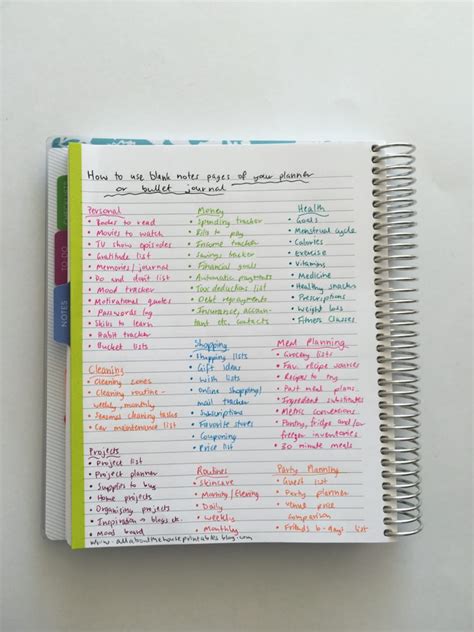 How to use blank notes pages of your planner
or bullet journal
Personal
• Books to read
• Movies to watch
• TV show episodes
• Gratitude list
• Memories / journal
• Do and don't list
• Mood tracker
• Motivational quotes
• Passwords log
• Skills to learn
• Habit tracker
• Bucket lists
Money
• Spending tracker
• Bills to pay
• Income tracker
• Savings tracker
• Financial goals
• Automatic payments
• Tax deductions list
• Debt repayments
• Insurance, accoun-
tant etc. contacts
Health
• Goals
• Menstrual cycle
• Calories
• Exercise
• Vitamins
• Medicine
• Healthy snacks
• Prescriptions
• Weight loss
• Fitness Classes
Cleaning
• Cleaning zones
• Cleaning routine -
weekly, monthly
• Seasonal cleaning tasks
• Car maintenance list
Shopping
• Shopping lists
• Gift ideas
• Wish lists
• Online shopping/
mail tracker
• Subscriptions
• Favorite stores
• Couponing
• Price list
Meal Planning
• Grocery lists
• Fav. recipe sources
• Recipes to try
• Past meal plans
• Ingredient substitutes
• Metric conversions
• Pantry, fridge and/or
freezer inventories
• 30 minute meals
Projects
• Project list
• Project planner
• Supplies to buy
• Home projects
• Organising projects
• Inspiration - blogs etc.
• Mood board
Routines
• Skincare
• Morning/Evening
• Daily
• Weekly
• Monthly
Party Planning
• Guest list
• Party planner
• Venue price
comparison
• Friends b-days list
www.allaboutthehouseprintablesblog.com
TO DO
NOTES